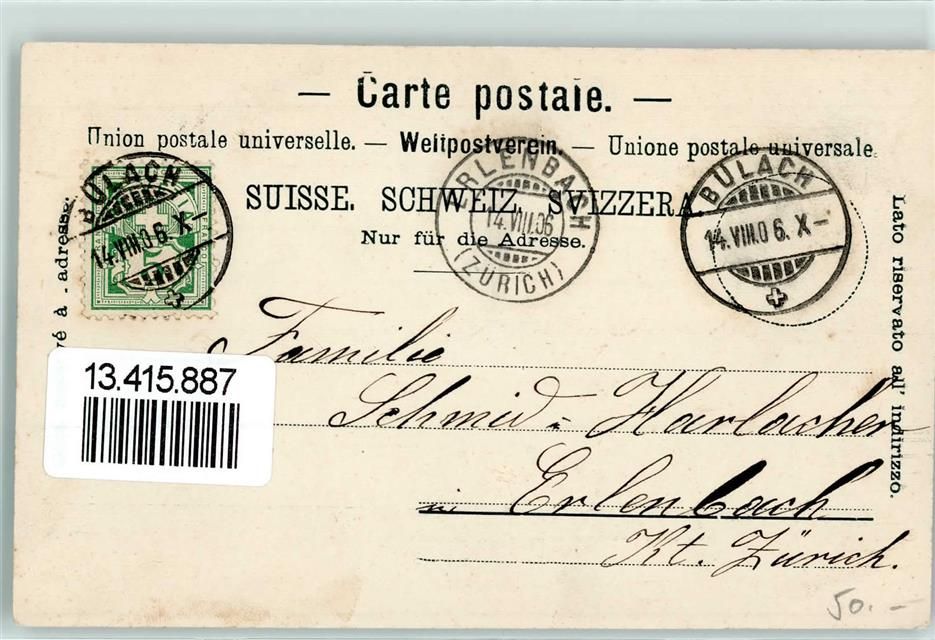 — Carte postale. —
Union postale universelle. — Weltpostverein. — Unione postale universale.
SUISSE. SCHWEIZ. SVIZZERA.
Nur für die Adresse.
BÜLACH
14.VIII.06.X—
ERLENBACH
14.VIII.06
(ZÜRICH)
BÜLACH
14.VIII.06.X—
vé à l'adresse
Lato riservato all' indirizzo.
13.415.887
Familie
Schmid-Harlacher
in Erlenbach
Kt. Zürich.
50.-